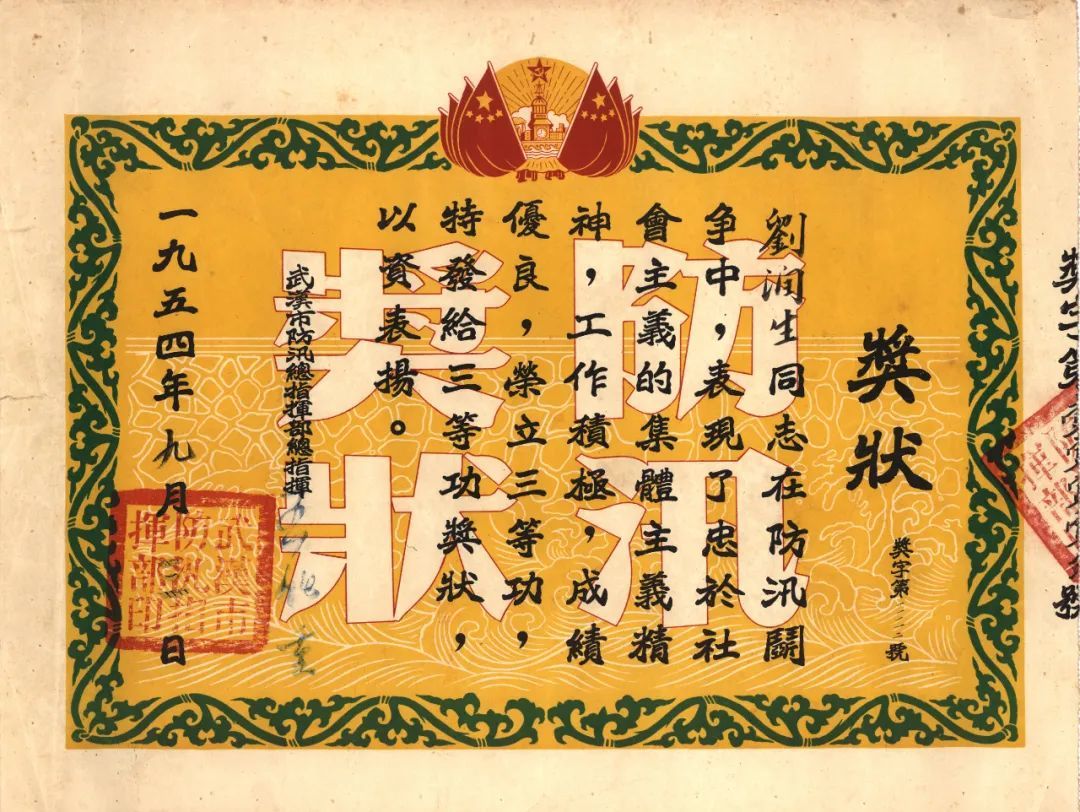 獎狀
獎字第一二三號
劉润生同志在防汛鬭
争中，表現了忠於社
會主義的集體主義精
神，工作積極，成績
優良，榮立三等功，
特發給三等功獎狀，
以資表揚。
武漢市防汛總指揮部總指揮
一九五四年九月 日
防汛
獎狀
武漢市
防汛指
揮部印